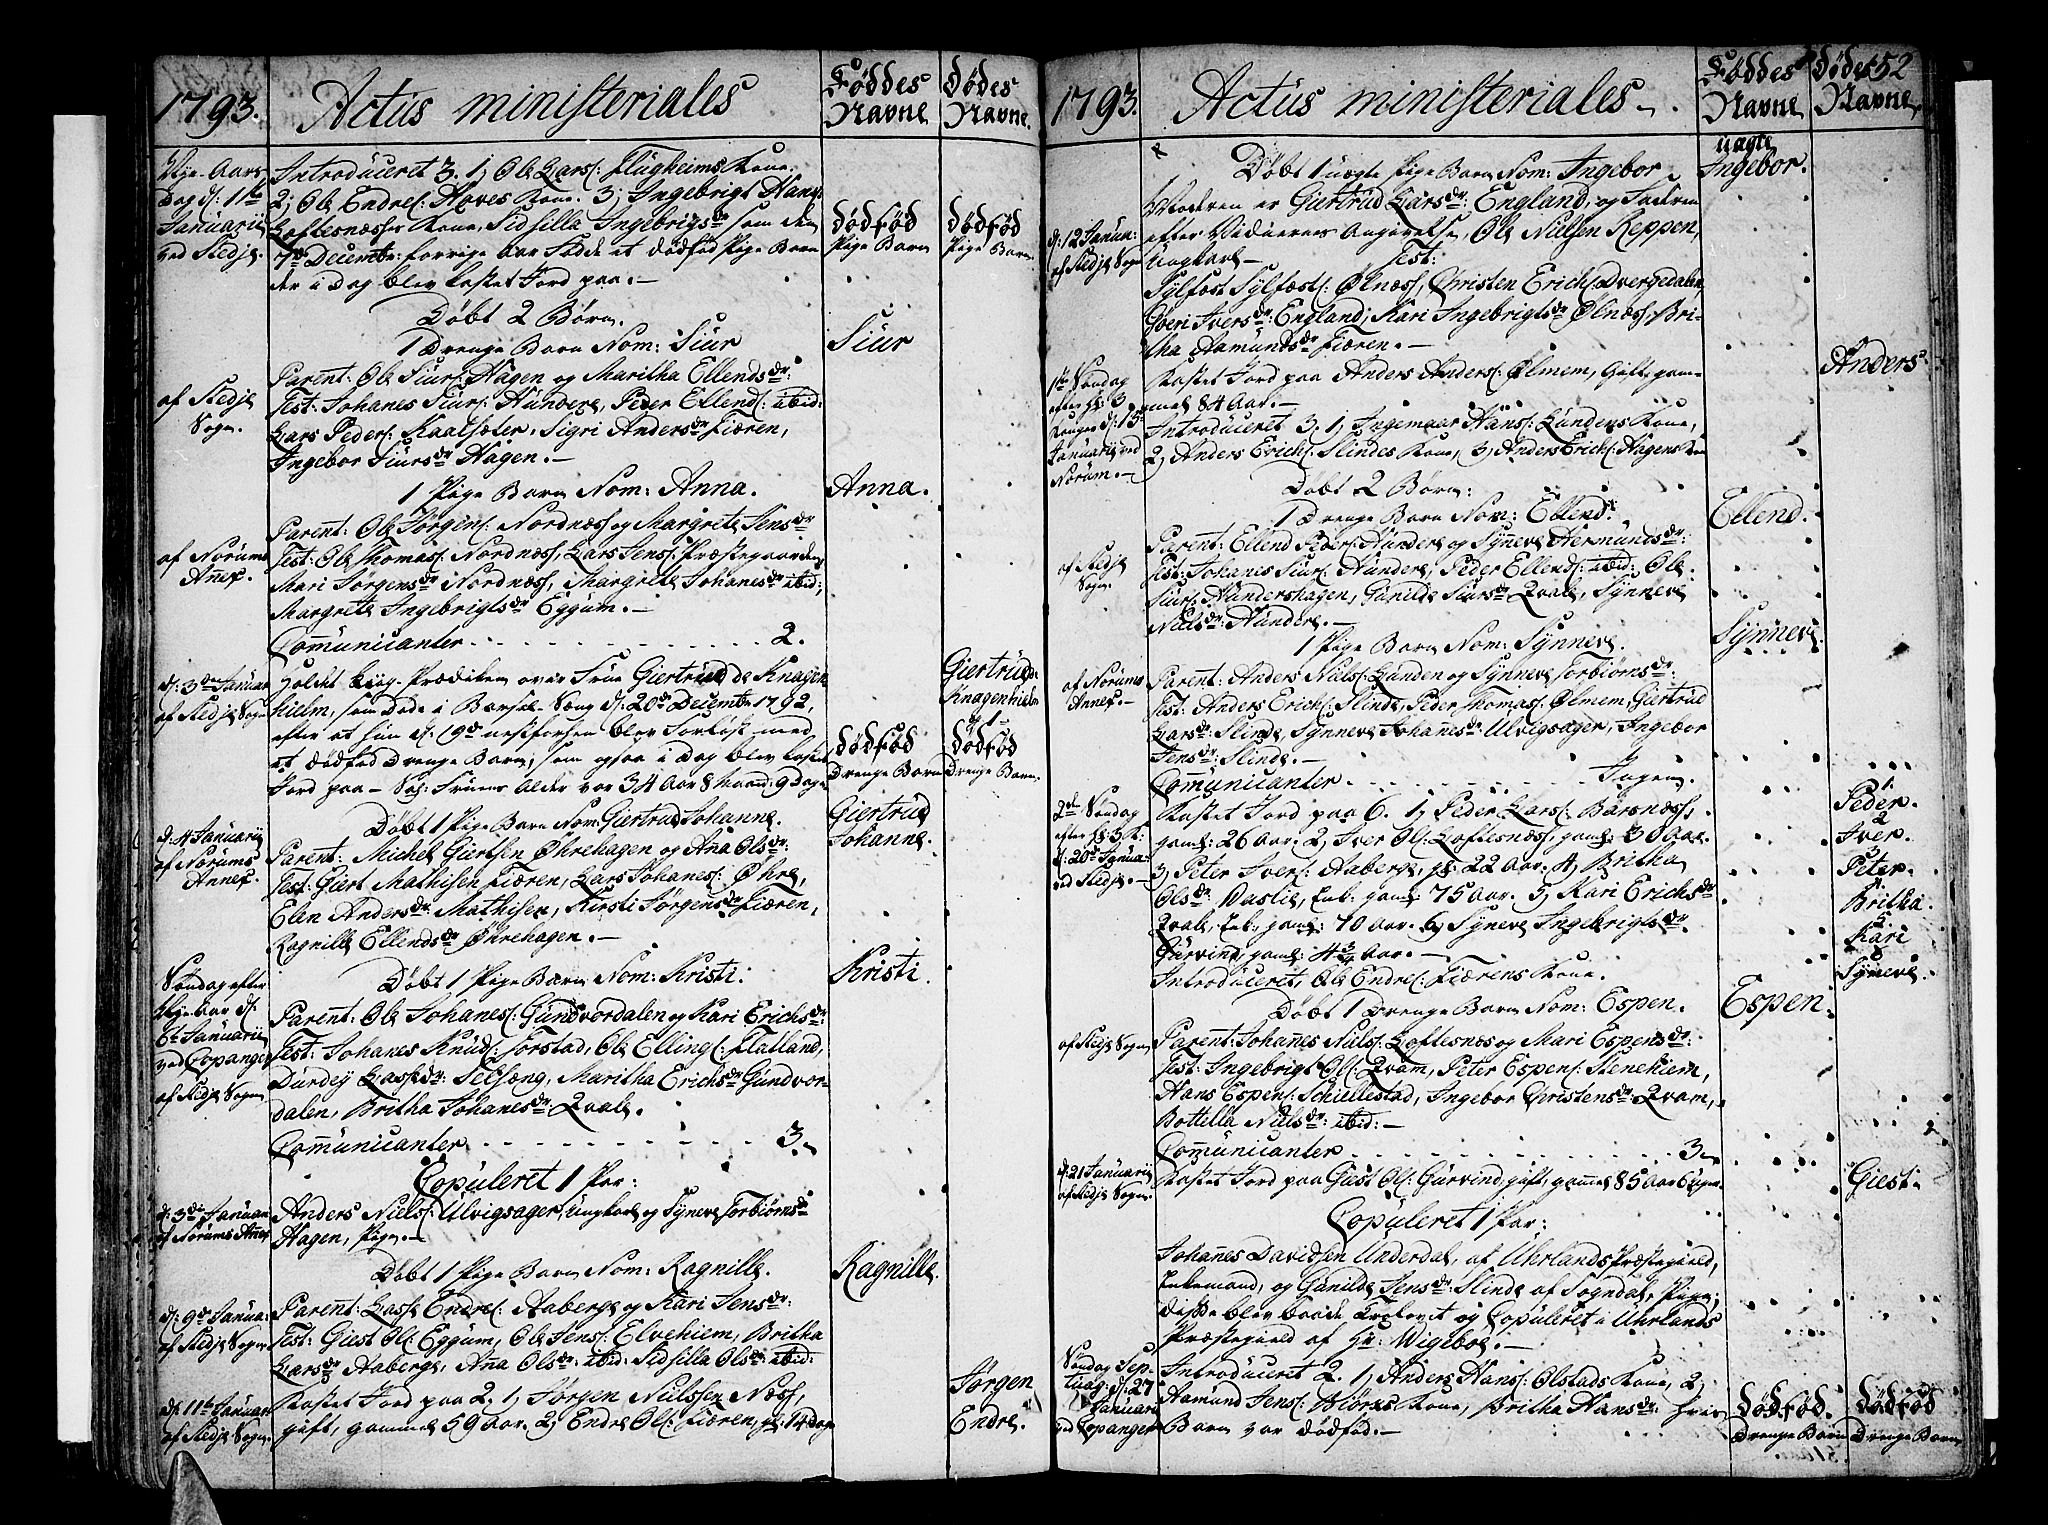 1793.
Actus ministeriales
Føddes Navne
Dødes Navne.
Nye-Aars Dag d: 1te Januarii ved Stedje.
Introduceret 3. 1, Ole Lars: Flugheims Kone.
2, Ole Endres: Hoves Kone. 3, Ingebrigt Hans:
Loftesnæsses Kone, Sidsilla Ingebrigsdr som den
7de Decembr: forrige Aar fødde et dødfød Pige Barn
der i Dag blev kastet Jord paa.-
dødfød Pige Barn
dødfød Pige Barn
Døbt 2 Børn.
1 Drenge Barn Nom: Siur
Siur
af Stedje Sogn.
Parent: Ole Siurs: Hagen og Maritha Ellendsdr:
Test: Johanes Siurs: Hundere, Peder Ellends: ibid:
Lars Peders: Kaalsæter. Sigri Andersdr Fiæren,
Ingebor Siursdr Hagen.-
1 Pige Barn Nom: Anna.
Anna.
af Norums Annex.
Parent: Ole Jørgens: Nordnæss og Margrete Jensdr
Test: Ole Thomas: Nordnæss, Lars Jens: Præstegaarden,
Mari Jørgensdr Nordnæss, Margrete Johanesdr ibid;
Margrete Ingebrigtsdr Eggum.-
Comunicanter . . . 2.
d: 3de Januar af Stedje Sogn
Holdet Liig-Prædiken over Frue Giertrud de Knagen
hielm, som døde i Barsel-Seng d: 20de Decembr 1792,
efter at hun d: 19de næstforhen blev forløst med
et dødfød Drenge Barn, som ogsaa i Dag blev kastet
Jord paa - Sal: Fruens Alder var 34 Aar 8 Maan: 9 Dage
Giertrud de Knagenhielm
dødfød Drenge Barn
dødfød Drenge Barn.
Døbt 1 Pige Barn Nom: Giertrud Johanne.
Giertrud Johanne.
d: 4 Januarii af Norums Annex.
Parent: Michel Giertsen Øhrehagen og Ana Olsdr:
Test: Giert Mathisen Fiæren, Lars Johanes: Øhre,
Elen Andersdr: Mathisen, Kirsti Jørgensdr Fiæren,
Ragnille Ellendsdr Øhrehagen.-
Døbt 1 Pige Barn Nom: Kristi:
Kristi
Søndag efter Nye-Aar d: 6te Januarii ved Copanger af Stedje Sogn
Parent: Ole Johanes: Gundvordalen og Kari Erichsdr:
Test: Johanes Knuds: Torstad, Ole Ellings: Flatland,
Durdey Lassedr: Selseng, Maritha Erichsdr Gundvor-
dalen, Britha Johanesdr: Qvale.
Comunicanter . . . 3.
Copuleret 1 Par:
d: 3de Januar af Norums Anex
Anders Niels: Ulvigsager, Ungkarl og Synneve Torbiørnsdr
Hagen, Pige.-
Døbt 1 Pige Barn Nom: Ragnille.
Ragnille.
d: 9de Janua: af Stedje Sogn
Parent: Lasse Endres: Aaberge og Kari Jensdr:
Test: Giest Ols: Eggum, Ole Jens: Elvehiem, Britha
Larsdr Aaberge, Ana Olsdr: ibid: Sidsilla Olsdr: ibid:
d: 11te Januar af Stedje Sogn.
Kastet Jord paa 2. 1, Jørgen Nielssen Næss,
gift, gammel 59 Aar. 2, Endre Ols: Fiæren, gl: 14 dage
Jørgen
Endre.
1793.
Actus ministeriales.
Føddes Navne
Dødes Navne
152
Døbt 1 uægte Pige Barn Nom: Ingebor
uægte Ingebor.
d: 12 Janua: af Stedje Sogn
Moderen er Giertrud Larsdr: England, og Faderen
efter Vidnernes Angivelse, Ole Nielsen Reppen,
Ungkarl- Test:
Sylfæst Sylfæsts: Ølnæss, Christen Erichs: Dvergedalen
Goeri Iversdr: England; Kari Ingebrigtsdr Ølnæss. Bri-
tha Aamundsdr Fiæren.-
1te Søndag efter H: 3 Konger d: 13 Januarii ved Norum.-
Kastet Jord paa Anders Anders: Ølmem, Gift, gam-
mel 84 Aar.-
Anders
Introduceret 3. 1, Ingemaar Hans: Lundens Kone,
2, Anders Erichs: Slindes Kone, 3, Anders Erichs: Hagens Kone
Døbt 2 Børn:
1 Drenge Barn Nom: Ellend.
Ellend.
af Stedje Sogn.
Parent: Ellend Peders: Hundere og Synneve Hermundsdr:
Test: Johanes Siurs: Hundere, Peder Ellends: ibid: Ole
Siurs: Hundershagen, Gunilde Siursdr Qvale, Synneve
Nielsdr: Hundere.-
1 Pige Barn Nom: Synneve.
Synneve.
af Norums Annex-
Parent: Anders Niels: Lunden og Synneve Torbiørnsdr:
Test: Anders Erichs: Slinde, Peder Thomas: Ølmem, Giertrud
Larsdr: Slinde, Synneve Johanesdr: Ulvigsager, Ingebor
Jensdr: Slinde.-
Comunicanter . . . Ingen.
2den Søndag efter H: 3 K: d: 20de Janua: ved Stedje.-
Kastet Jord paa 6. 1, Peder Lars: Barsnæss.
gaml: 26 Aar. 2, Iver Ols: Loftesnæss, gaml: 30 Aar.
3, Peter Ivers: Aaberge, gl: 22 Aar. 4, Britha
Olsdr: Daslie, Enk: gaml: 75 Aar. 5, Kari Erichsdr
Qvale, Enk:, gaml: 70 Aar. 6, Syneve Ingebrigtsdr
Gurvin, gaml: 4 3/4 Aar.-
1 Peder.
2 Iver.
3 Peter.
4 Britha.
5 Kari
6 Syneve.
Introduceret, Ole Endres: Fiærens Kone.
Døbt 1 Drenge Barn Nom: Espen.
Espen.
af Stedje Sogn
Parent: Johanes Niels: Loftesnes og Mari Espensdr:
Test: Ingebrigt Ols: Qvam, Peter Espens: Stenehiem,
Hans Espens: Schiellestad, Ingebor Christensdr: Qvam,
Bottella Nielsdr: ibid:-
Comunicanter . . . 3.
d: 21 Januarii af Stedje Sogn.
Kastet Jord paa Giest Ols: Gurvind, gift, gamel 85 Aar 6 Uger.
Giest.
Copuleret 1 Par:
Johanes Davidsen Underdal, af Uhrlands Præstegield,
Enkemand, og Gunilde Jensdr: Slinde af Sogndal, Pige;
disse blev baade Trolovet og Copuleret i Uhrlands
Præstegield af Hr: Wigeboe.-
Søndag Sep-tuag: d: 27 Januari ved Copanger
Introduceret 2. 1, Anders Hans: Olstads Kone, 2,
Aamund Jens: Biørns Kone, Britha Hansdr: hvis
Barn var dødfød.-
dødfød. Drenge Barn
dødfød Drenge Barn